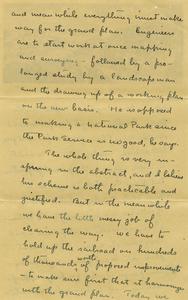 and meanwhile everything must make
way for the grand plan. Engineers
are to start work at once mapping
and surveying - followed by a pro-
longed study by a landscape man
and the drawing up of a working plan
on the new basis. He is opposed
to making a National Park since
the Park Service is no good, he says.
The whole thing is very in-
spiring in the abstract, and I believe
his scheme is both practicable and
justified. But in the meanwhile
we have the little messy job of
clearing the way. We have to
hold up the railroad on hundreds
of thousands worth of proposed improvements
- to make sure first that it harmonizes
with the grand plan. Today we